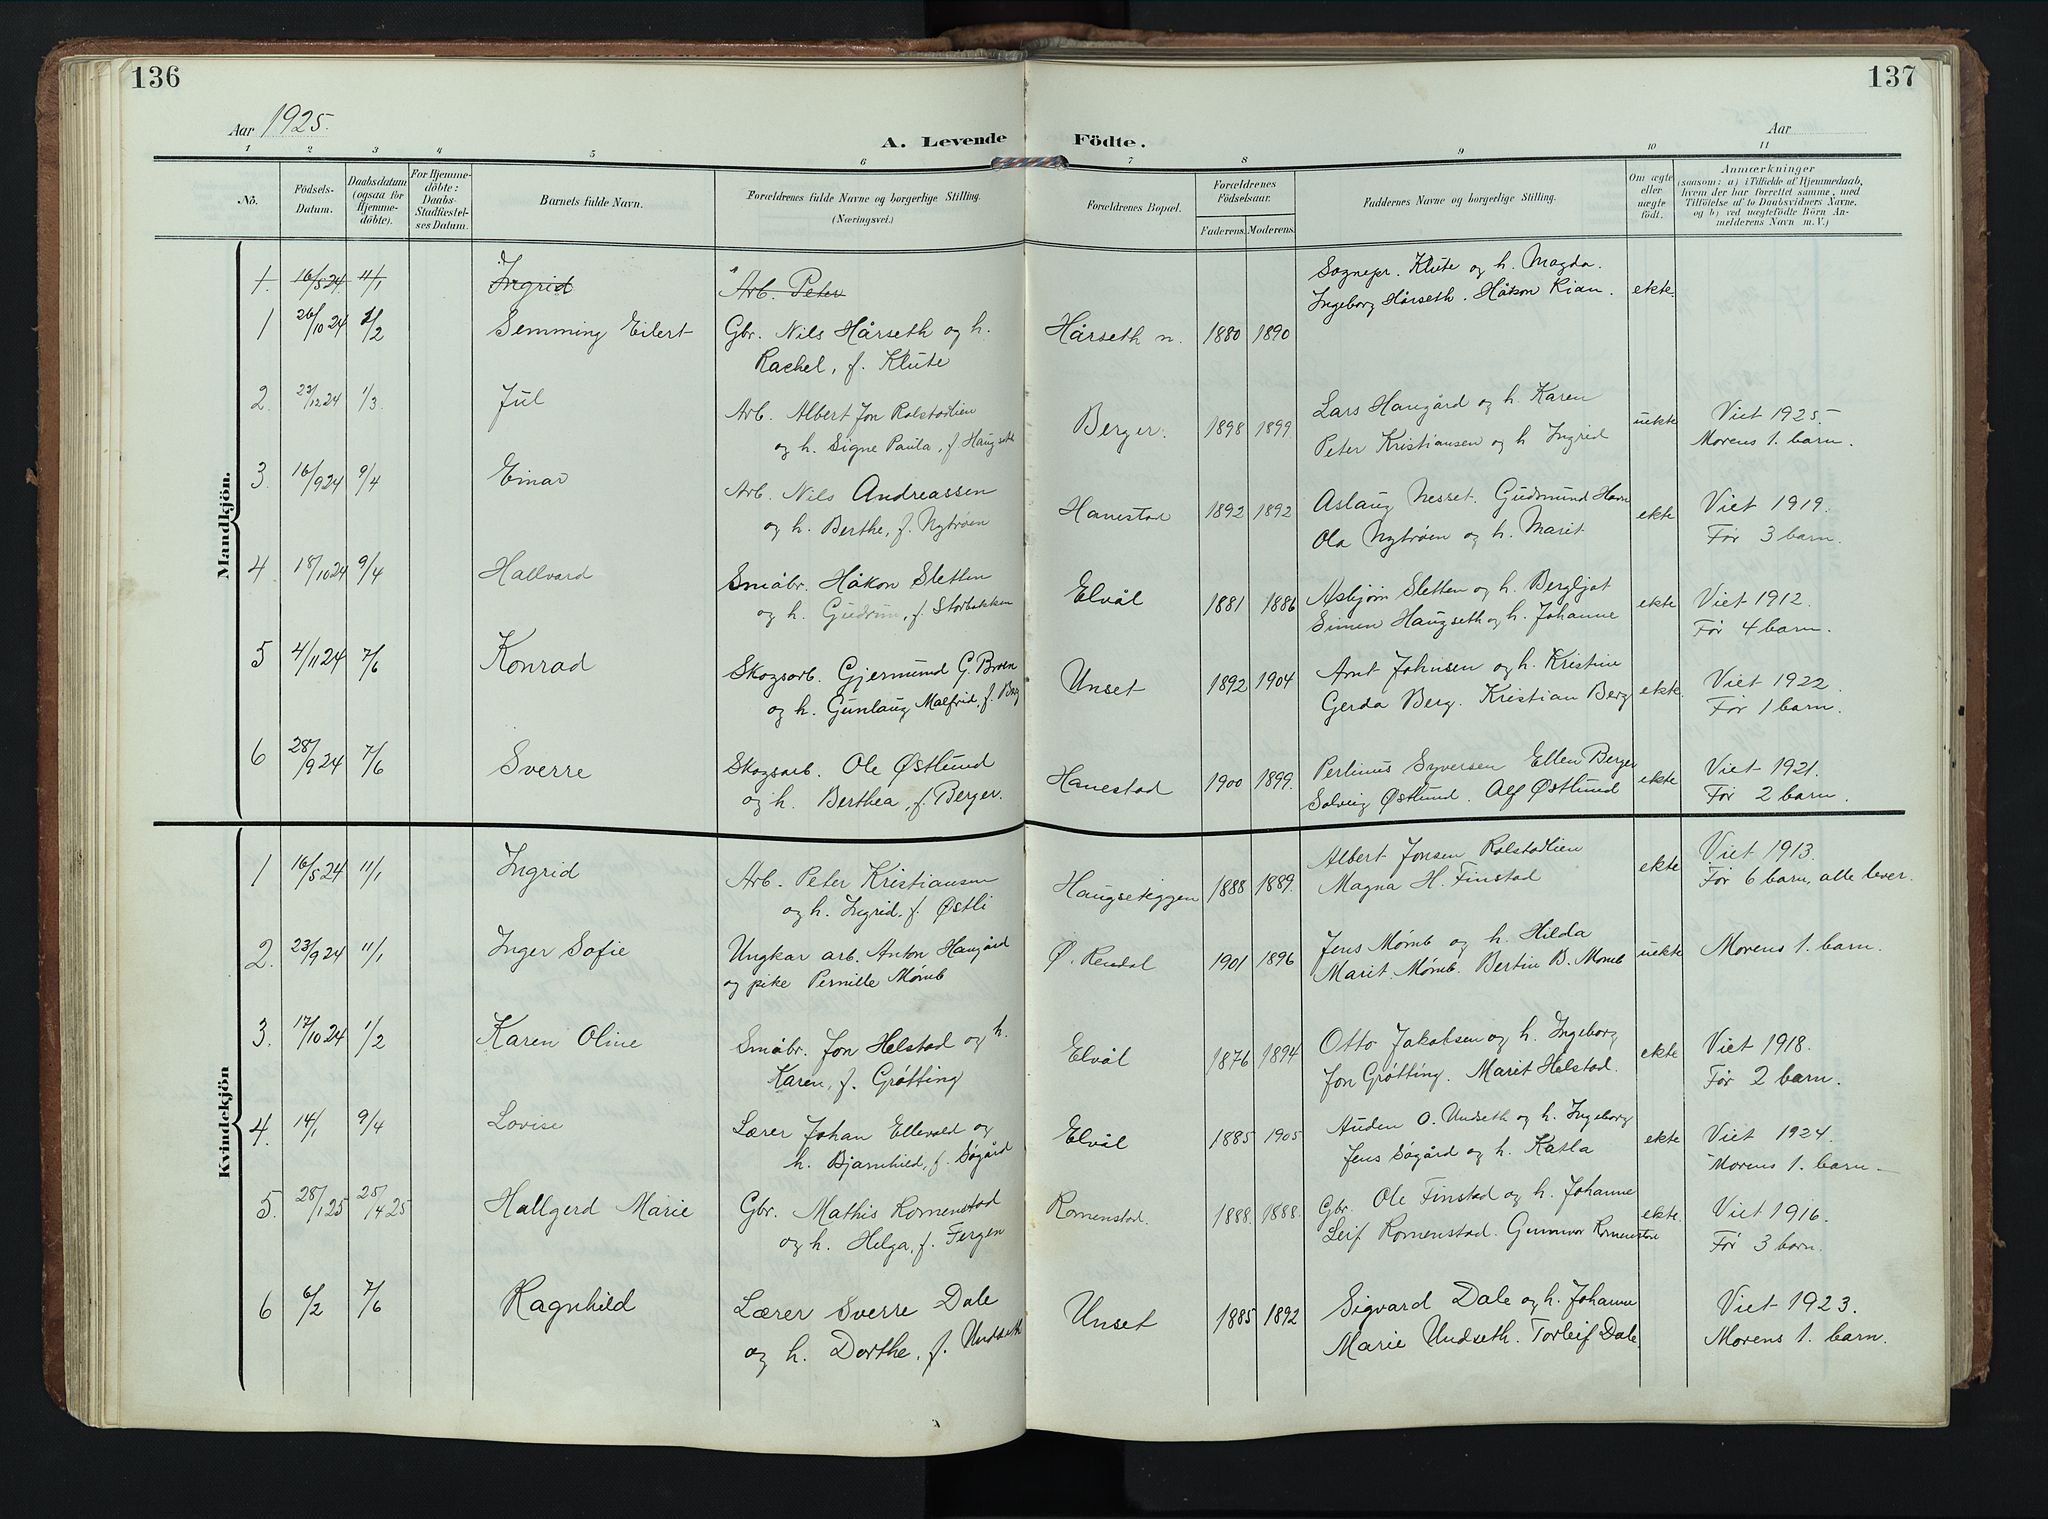 136
137
Aar 1925.
A. Levende Födte.
Aar
1 2 3 4 5 6 7 8 9 10 11
Nö.
Födsels-
Datum.
Daabsdatum
(ogsaa for
Hjemme-
döbte).
For Hjemme-
döbte:
Daabs-
Stadfæstel-
ses Datum.
Barnets fulde Navn.
Forældrenes fulde Navne og borgerlige Stilling.
(Næringsvei.)
Forældrenes Bopæl.
Forældrenes
Födselsaar.
Faderens. Moderens.
Faddernes Navne og borgerlige Stilling.
Om ægte
eller
uægte
födt.
Anmærkninger
(saasom: a) i Tilfælde af Hjemmedaab,
hvem der har forrettet samme, med
Tilföielse af to Daabsvidners Navne,
og b) ved uægtefödte Börn An-
melderens Navn m. V.)
Mandkjön.
1. 16/5 24 11/1 Ingrid Arb. Peter
1 26/10 24 1/2 Semming Eilert Gbr. Nils Hårseth og h.
Rachel, f. Klute
Hårseth n. 1880 1890
Sognepr. Klute og h. Magda.
Ingeborg Hårseth. Håkon Rian. ekte.
2. 23/12 24 1/3. Jul Arb. Albert Jon Rolstadlien
og h. Signe Paula, f. Haugseth
Berger. 1898 1899.
Lars Haugård og h. Karen
Peter Kristiansen og h Ingrid
uekte Viet 1925
Morens 1. barn.
3. 16/9 24 9/4 Einar Arb. Nils Andreassen
og h. Berthe, f. Nytrøen
Hanestad 1892 1892
Aslaug Nesset. Gudmund Havn
Ola Nytrøen og h. Marit
ekte Viet 1919.
Før 3 barn.
4 18/10 24 9/4 Hallvard Småbr. Håkon Sletten
og h. Gudrun, f. Storbakken
Elvål 1881 1886
Asbjørn Sletten og h. Bergljot
Simen Haugseth og h. Johanne
ekte Viet 1912.
Før 4 barn.
5 4/11 24 7/6 Konrad Skogsarb. Gjermund G. Broen
og h. Gunlaug Malfrid, f. Berg
Unset 1892 1904
Arnt Johnsen og h. Kristine
Gerda Berg. Kristian Berg
ekte. Viet 1922.
Før 1 barn.
6 28/9 24 7/6 Sverre Skogsarb. Ole Østlund
og h. Berthea, f. Berger.
Hanestad 1900 1899.
Perlinus Syversen Ellen Berger
Solveig Østlund. Alf Østlund
ekte Viet 1921.
Før 2 barn.
Kvindekjön
1 16/5 24 11/1 Ingrid Arb. Peter Kristiansen
og h. Ingrid, f. Østli
Haugseteggen 1888 1889.
Albert Jonsen Rolstadlien
Magna H. Finstad
ekte Viet 1913.
Før 6 barn, alle lever.
2. 23/9 24 11/1 Inger Sofie Ungkar arb. Anton Haugård
og pike Pernille Mømb
Ø. Rendal 1901 1896
Jens Mømb og h. Hilda
Marit Mømb. Bertin B. Mømb
uekte Morens 1. barn.
3. 17/10 24 1/2 Karen Oline Småbr. Jon Helstad og h.
Karen, f. Grøtting
Elvål 1876 1894
Otto Jakobsen og h. Ingeborg
Jon Grøtting. Marit Helstad.
ekte Viet 1918.
Før 2 barn.
4. 14/1 9/4 Lovise Lærer Johan Ellevold og
h. Bjarnhild, f. Søgård
Elvål 1885 1905
Auden O. Undseth og h. Ingeborg
Jens Søgård og h. Katla
ekte Viet 1924.
Morens 1. barn
5. 28/1 25 25/4 25 Hallgerd Marie Gbr. Mathis Romenstad
og h. Helga, f. Fergen
Romenstad. 1888. 1888.
Gbr. Ole Finstad og h. Johanne
Leif Romenstad. Gunnvor Romenstad
ekte. Viet 1916.
Før 3 barn.
6 6/2 7/6 Ragnhild Lærer Sverre Dale
og h. Dorthe, f. Undseth
Unset 1885 1892
Sigvard Dale og h. Johanne
Marie Undseth. Torleif Dale
Viet 1923.
Morens 1. barn.